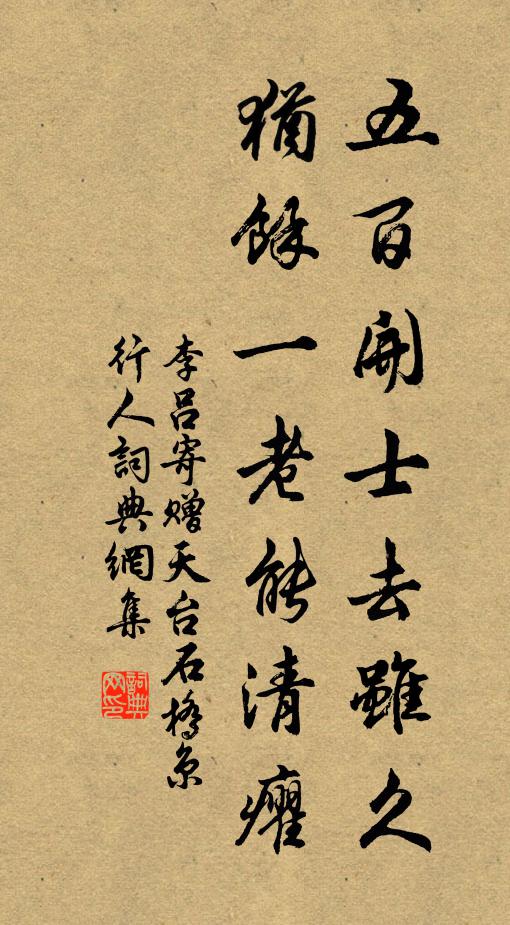 五百開士去雖久
猶餘一老能清癯
李呂寄贈天台石橋魚
行人詞典網集
詞典
网印